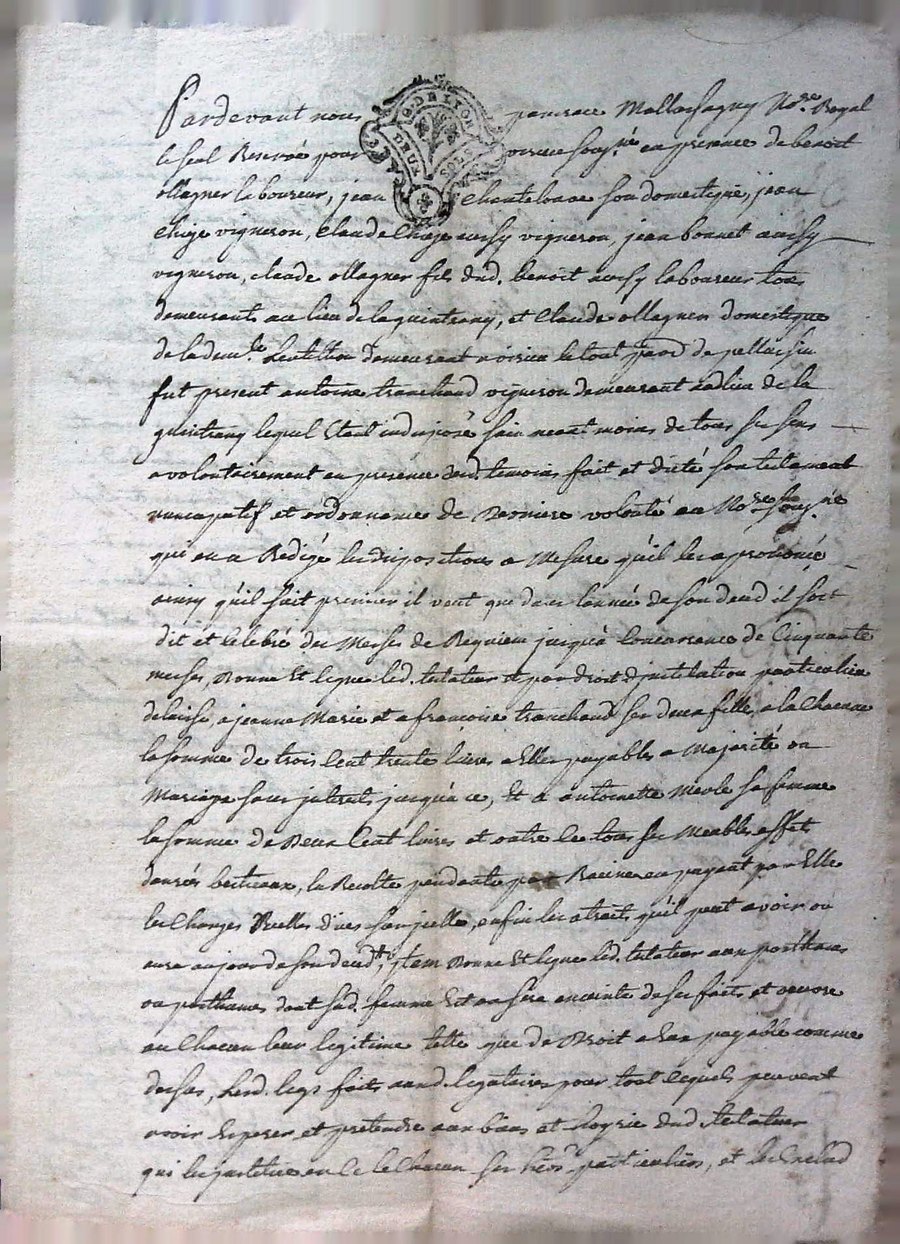 Pardevant nous pancrace Mallachagny No.re Royal
le seel Reservé pour soussig.né en presence de benoit
ollagner laboureur, jean Chantelouve son domestique, jean
Chize vigneron, Claude Chize aussy vigneron, jean bonnet aussy
vigneron, claude ollagner fils dud. benoit aussy laboureur tous
demeurants au lieu de laguintrany, et Claude ollagner domestique
de la dem.lle demeurant le tout par.sse de pollassin
fut present antoine tranchand vigneron demeurant audlieu de la
guintrany lequel Etant indisposé sain neant moins de tous ses sens
a volontairement en presence desd. temoins fait et dicté son testament
nuncupatif et ordonnance de Derniere volonté au No.re sousig.né
qui en a Redigé les dispositions a Mesure qu'il les a prononcé
ainsy qu'il suit premier il veut que dans l'année de son deced il soit
dit et Celebré des Messes de Requiem jusqu'à Concurrance de Cinquante
messes, Donne Et legue led. testateur et par droit d'institution particuliere
delaisse, a jeanne Marie et a françoise tranchand ses deux filles, a la Chacune
la somme de trois Cent trente livres a Elles payables a Majorité ou
Mariage sans jnterets jusqu'a ce, Et a antoinette sa femme
la somme de Deux Cent livres et outre ce tous ses Meubles effets
denrées bestiaux, la Recolte pendante par Racines en payant par Elle
les Charges Reelles dües sur jcelle, enfin les atraits qu'il peut avoir ou
aura au jour de son deced, jtem Donne Et legue led. testateur aux posthumes
ou posthume dont sad. femme Est ou sera enceinte de ses faits et oeuvre
au Chacun leur legitime telle que de Droit a Eux payable comme
dessus, lesd. legs faits auxd. legataires pour tout ce quels peuvent
avoir Esperer et pretendre aux biens et hoyrie dud. testateur
qui les jnstitue en Ce le Chacun ses heo.rs particuliers, et les Exclud